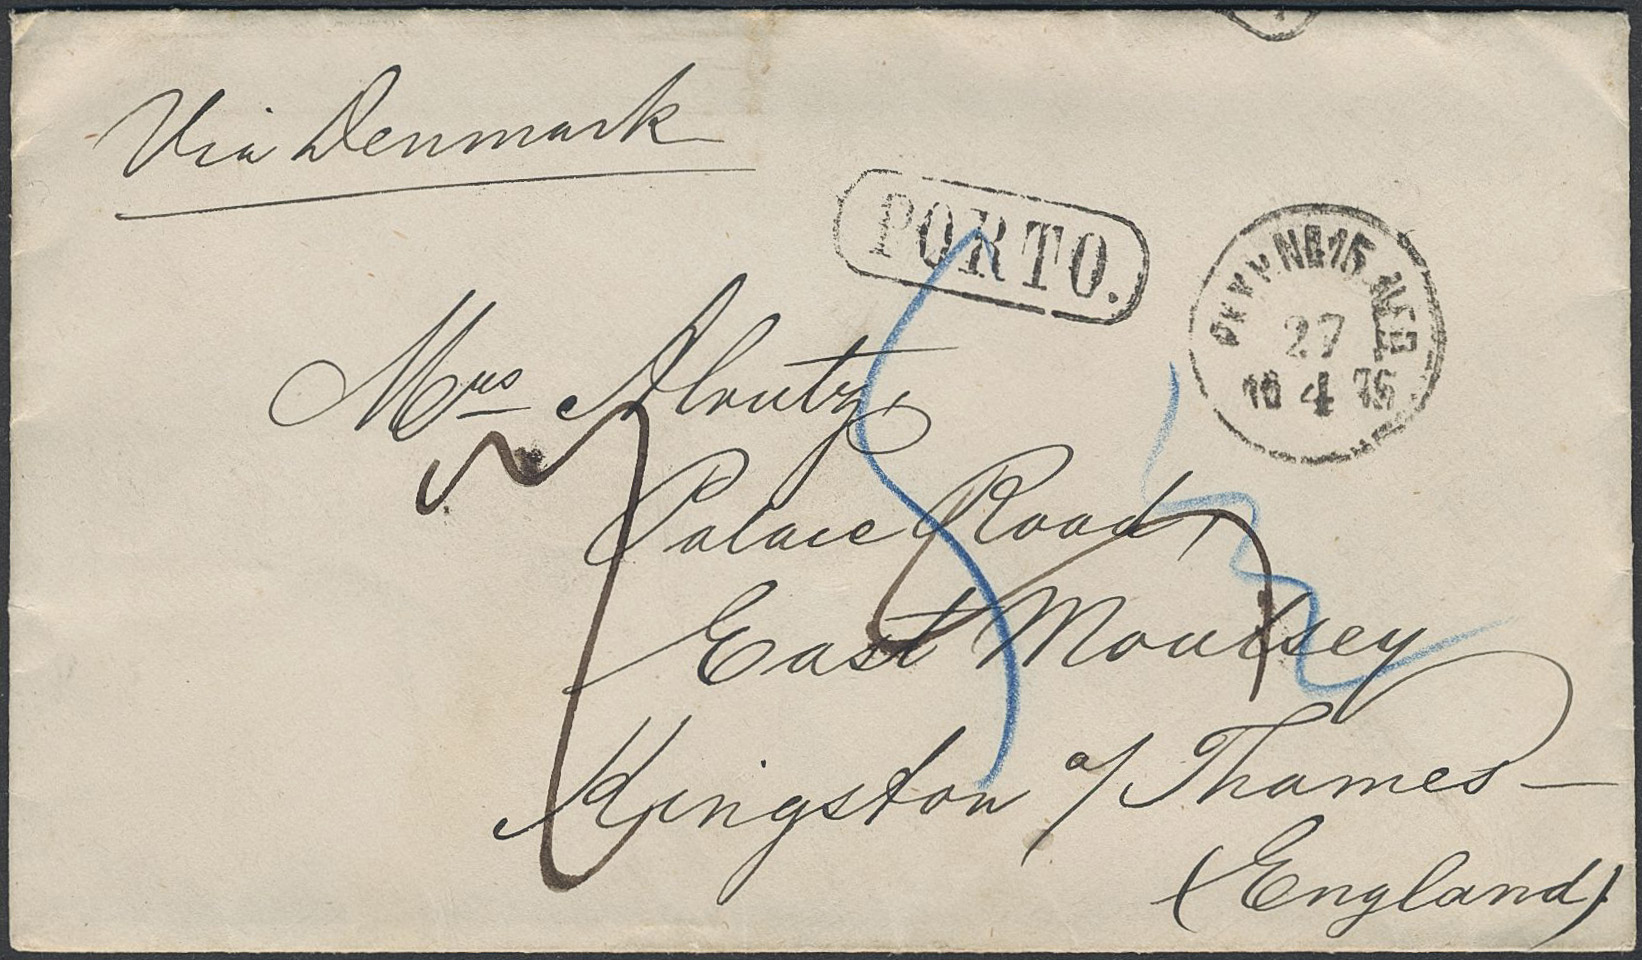 Via Denmark
PORTO.
PKXP.Nr15.NED
27
10 4 75
Mrs Alrutz,
Palace Road,
East Moulsey
Kingston o/ Thames —
(England)